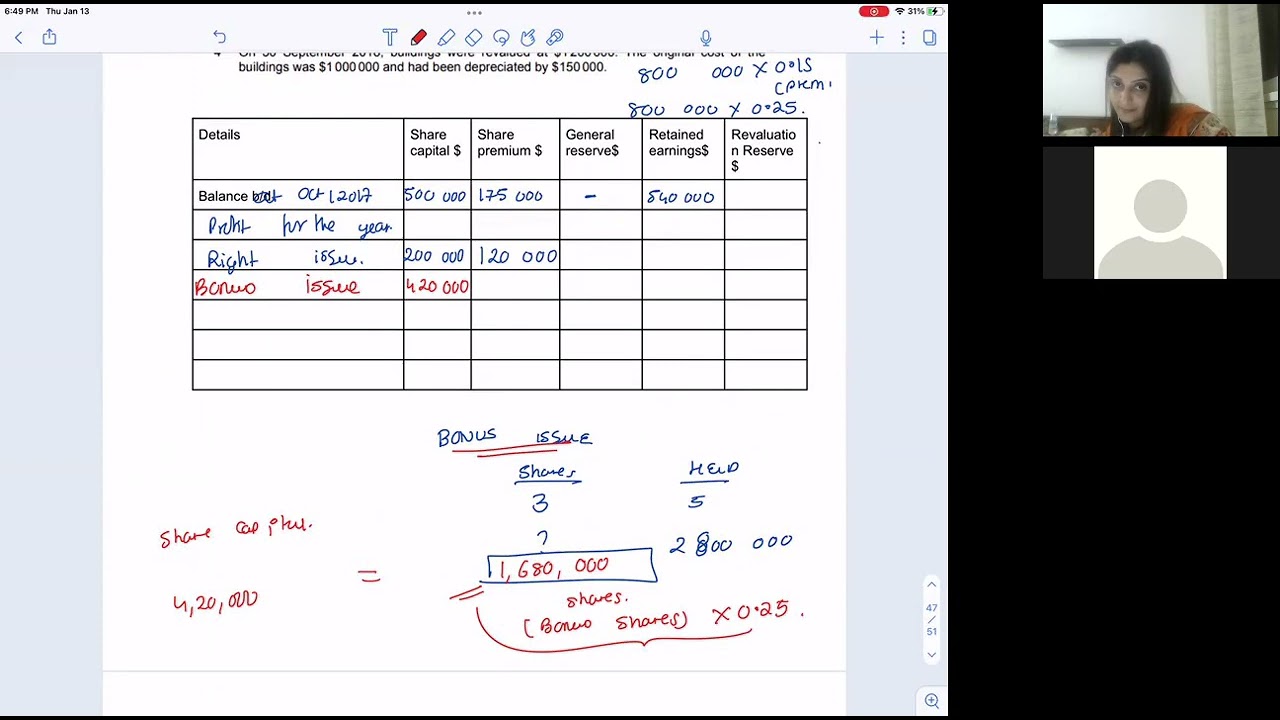 6:49 PM Thu Jan 13
31%
4 On 30 September 2018, buildings were revalued at $1 200 000. The original cost of the
buildings was $1 000 000 and had been depreciated by $150 000.
800 000 x 0.15
800 000 x 0.25.
Details Share capital $ Share premium $ General reserve$ Retained earnings$ Revaluatio n Reserve $
Balance Oct 1 2017 500 000 175 000 - 540 000
Profit for the year
Right issue. 200 000 120 000
Bonus issue 420 000
BONUS ISSUE
Shares HELD
3 5
? 2 800 000
1,680,000
shares.
(Bonus shares) x 0.25.
Share capital.
4,20,000 =
47
/
51